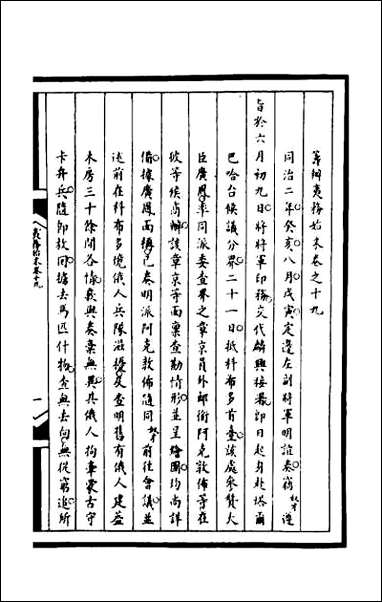 籌辦夷務始末卷之十九
同治二年癸亥八月戊寅定邊左副將軍明誼奏竊奴才遵
旨於六月初九日將將軍印務交代麟興接署即日起身赴塔爾
巴哈台候議分界二十一日抵科布多首臺該處參贊大
臣廣鳳率同派委查界之章京員外郎銜阿克敦佈等在
彼等候尚辦該章京等面稟查勘情形並呈繪圖均尚詳
備據廣鳳面稱已奏明派阿克敦佈隨同奴才前往會議並
述前在科布多境俄人兵隊滋擾及查明舊有俄人建蓋
木房三十餘間各情與奏稟無異其俄人拘牽蒙古守
卡弁兵隨即放回擄去馬匹什物查無去向無從窮追所